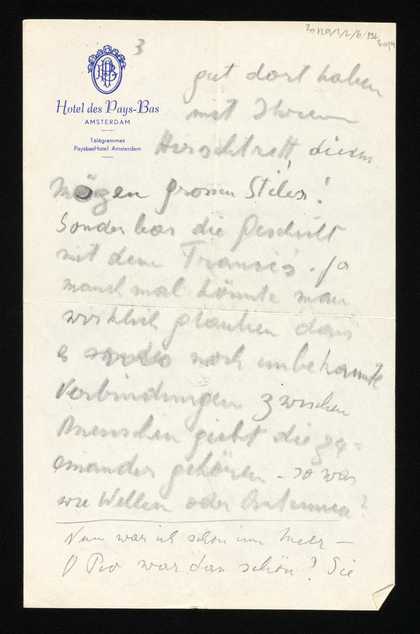 3
Hotel des Pays-Bas
AMSTERDAM
Telegrammes
PaysbasHotel Amsterdam
gut dort haben
mit Ihrem
diesem
Mäzen grossen Stiles!
Sonderbar die Geschicht
mit dem Francis. ja
manchmal könnte man
wirklich glauben dass
es noch unbekannte
Verbindungen zwischen
Menschen giebt die zu=
einander gehören – so was
wie Wellen oder Antennen?
Nun war ich schon im Meer –
O Pio war das schön! Sie